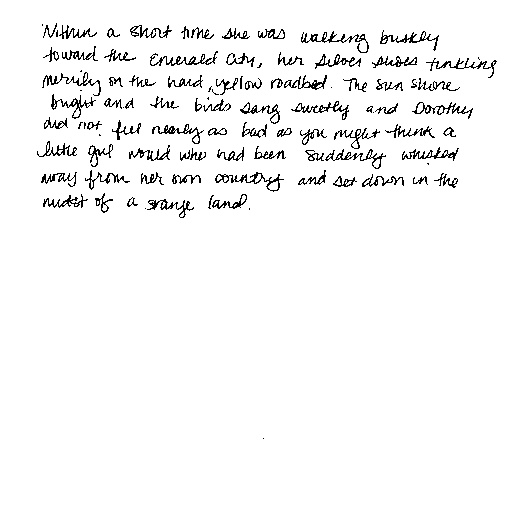 Within a short time she was walking briskly
toward the Emerald City, her silver shoes tinkling
merrily on the hard, yellow roadbed. The sun shone
bright and the birds sang sweetly and Dorothy
did not feel nearly as bad as you might think a
little girl would who had been suddenly whisked
away from her own country and set down in the
midst of a strange land.